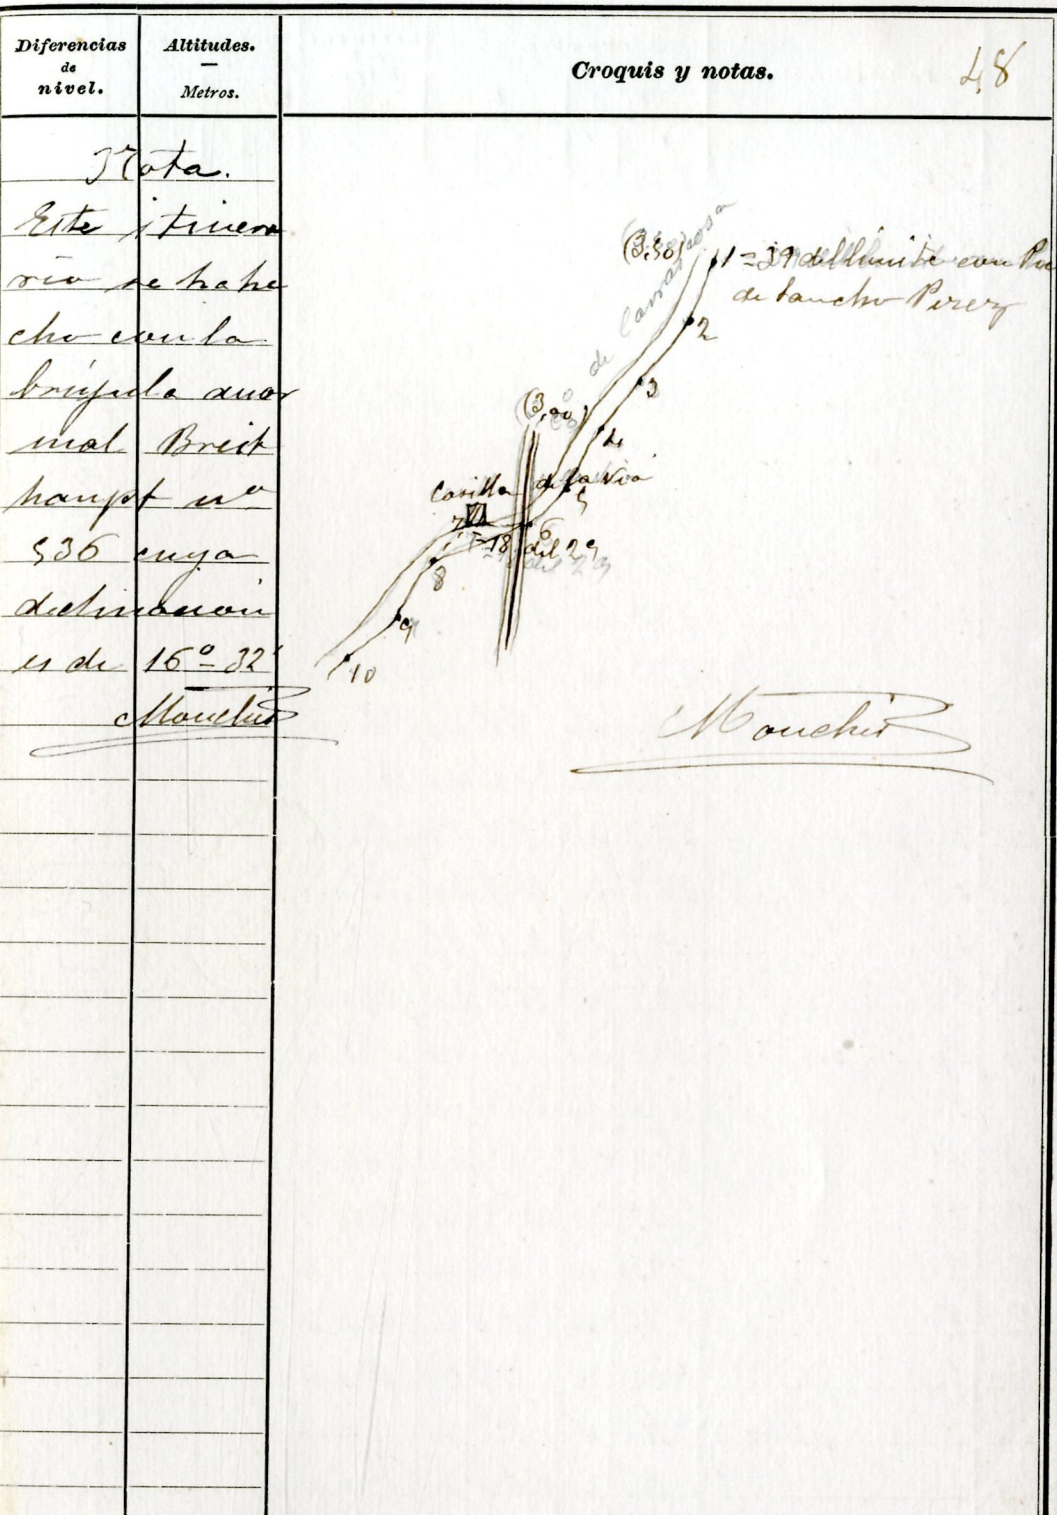 Diferencias
de
nivel.
Altitudes.
Metros.
Croquis y notas.
48
Nota.
Este itinera
rio se ha he
cho con la
brújula anor
mal Breit
haupt nº
536 cuya
declinacion
es de 16º=32'
(3,50)
1=39 del límite con
de Sancho Perez
de Carrascosa
2
3
(3,00)
4
Casilla de la Via
5
7
6
=18 del 29
8
9
10